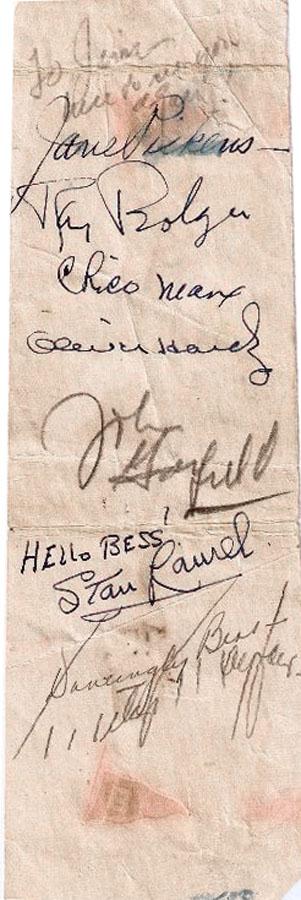 To
Nice to
Jane Pickens
Ray Bolger
Chico Marx
Oliver Hardy
John
Garfield
HELLO BESS!
Stan Laurel.
Dancingly Best